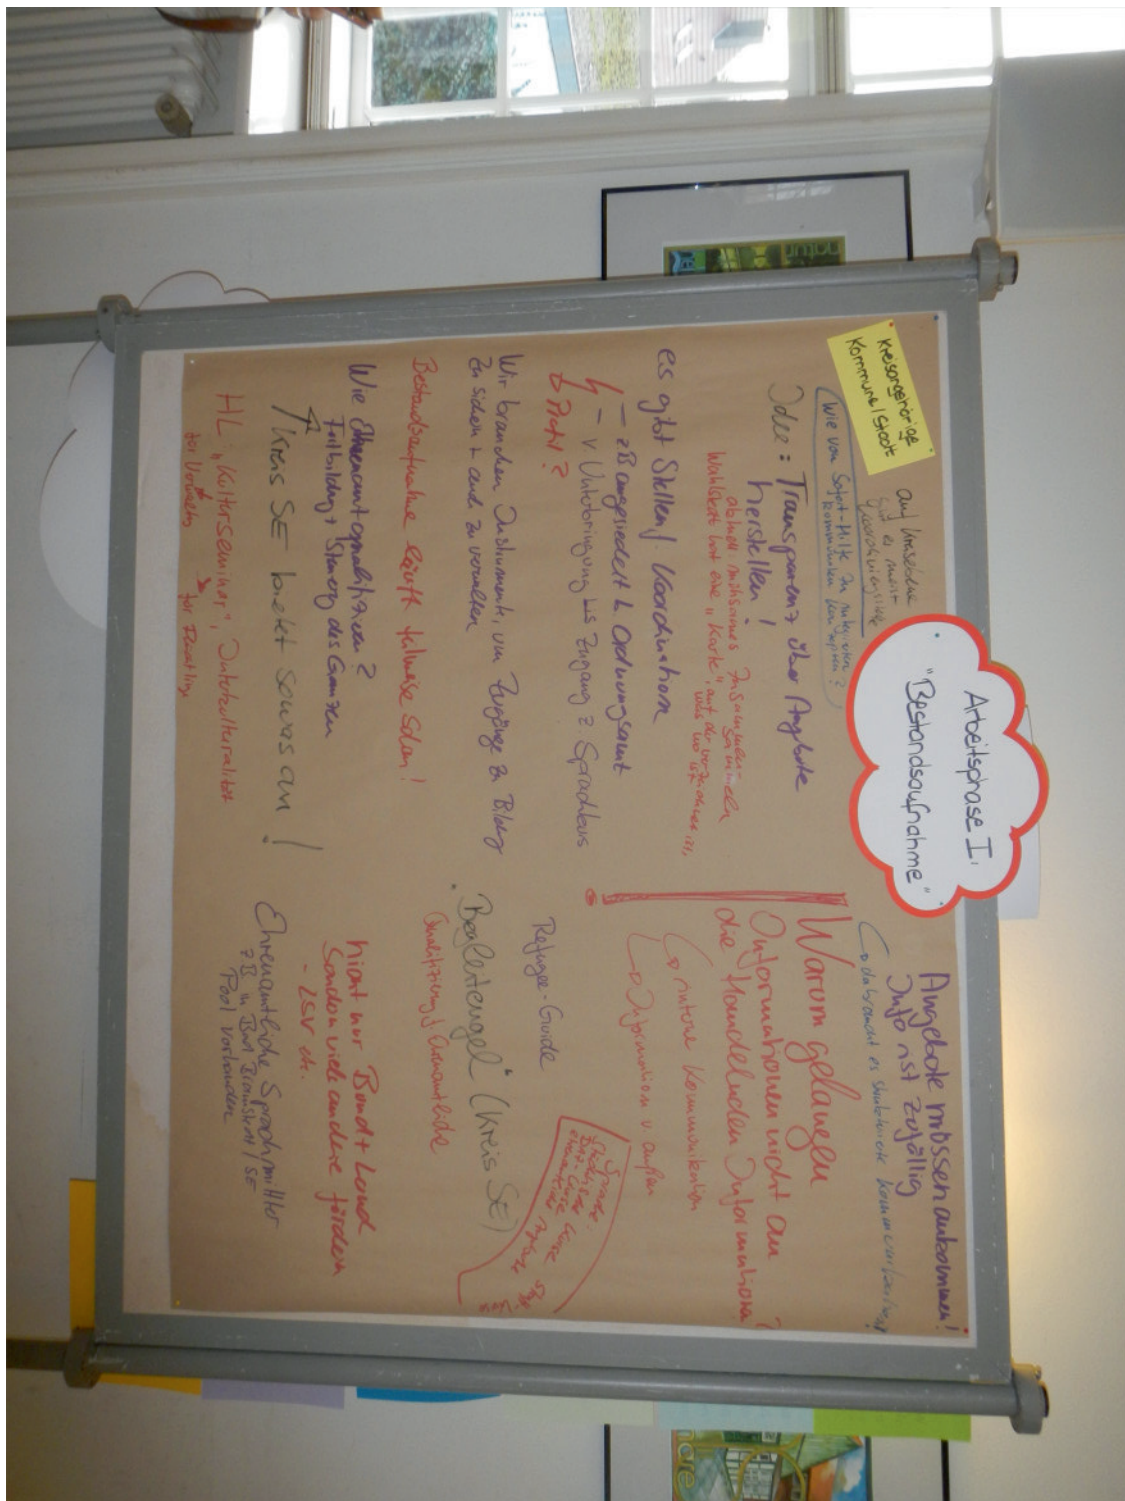 Arbeitsphase I:
"Bestandsaufnahme"
Kreisangehörige
Kommune/Stadt
auf Kreisebene
gibt es meist
Wie von Sofort-Hilfe zu
kommunalen
Idee: Transparenz über Angebote
herstellen!
mühsames Zusammen
sammeln
Wahlstedt hat eine "Karte", auf der verzeichnet ist,
was wo ist
es gibt Stellen f. Koordination
- zB angesiedelt b. Ordnungsamt
- v. Unterbringung bis Zugang z. Sprachkurs
Profil?
Wir brauchen Instrumente, um Zugänge zu Bildung
zu sichern + auch zu verwalten
Bestandsaufnahme läuft teilweise schon!
Wie Ehrenamt qualifizieren?
Fortbildung + Steuerung des Ganzen
Kreis SE bietet sowas an!
HL: "Kulturseminar", Interkulturalität
für für Flüchtlinge
Angebote müssen ankommen!
Info ist zufällig
da braucht es strukturierte
Warum gelangen
Informationen nicht an
die Handelnden Informationen?
interne Kommunikation
Information v. außen
Refugee-Guide
"Begleitengel" (Kreis SE)
Qualifizierung f. Ehrenamtliche
Sprache
nicht nur Bund + Land
sondern viele andere fördern
- LSV etc.
Ehrenamtliche Sprachmittler
zB in Bad Bramstedt/SE
Pool vorhanden